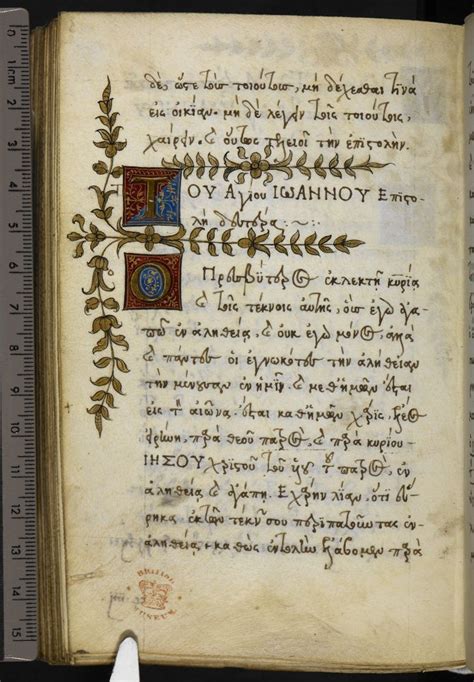 δὲ, ὥστε τοῖς τοιούτοις, μὴ δέχεσθαι τινὰ
εἰς οἰκίαν. μὴ δὲ λέγειν τοῖς τοιούτοις,
χαίρειν. καὶ οὕτως τὴν ἐπιστολήν.
ΤΟΥ Αγίου ΙΩΑΝΝΟΥ Επιστο
λὴ δευτέρα :~
Ὁ Πρεσβύτερος ἐκλεκτῇ κυρίᾳ
καὶ τοῖς τέκνοις αὐτῆς, οὓς ἐγὼ ἀγα
πῶ ἐν ἀληθείᾳ, καὶ οὐκ ἐγὼ μόνος, ἀλλὰ
καὶ πάντες οἱ ἐγνωκότες τὴν ἀλήθειαν
τὴν μένουσαν ἐν ἡμῖν. καὶ μεθ' ἡμῶν ἔσται
εἰς τὸν αἰῶνα. ἔσται μεθ' ἡμῶν χάρις, ἔλεος
εἰρήνη, παρὰ θεοῦ πατρὸς, καὶ παρὰ κυρίου
ΙΗΣΟΥ χριστοῦ τοῦ υἱοῦ τοῦ πατρὸς, ἐν
ἀληθείᾳ καὶ ἀγάπῃ. Ἐχάρην λίαν, ὅτι εὕ
ρηκα ἐκ τῶν τέκνων σου περιπατοῦντας ἐν
ἀληθείᾳ, καθὼς ἐντολὴν ἐλάβομεν παρὰ
BRITISH MUSEUM
0 1cm 2 3 4 5 6 7 8 9 10 11 12 13 14 15